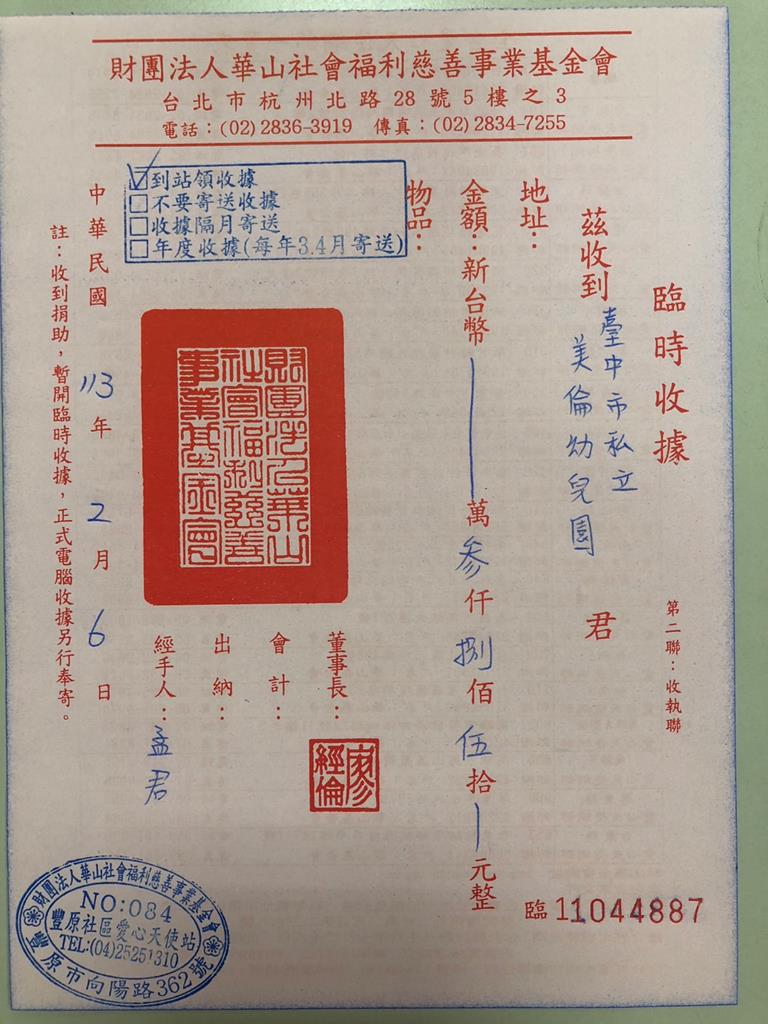 財團法人華山社會福利慈善事業基金會
台北市杭州北路28號5樓之3
電話：(02)2836-3919 傳真：(02)2834-7255
臨時收據
第二聯：收執聯
臨 11044887
茲收到 臺中市私立
美倫幼兒園 君
地址：
金額：新台幣 萬參仟捌佰伍拾 元整
物品：
到站領收據
不要寄送收據
收據隔月寄送
年度收據(每年3.4月寄送)
財團法人華山
社會福利慈善
事業基金會
董事長：
廖
經倫
會計：
出納：
經手人：孟君
中華民國113年2月6日
註：收到捐助，暫開臨時收據，正式電腦收據另行奉寄。
財團法人華山社會福利慈善事業基金會
NO:084
豐原社區愛心天使站
TEL:(04)25251310
豐原市向陽路362號